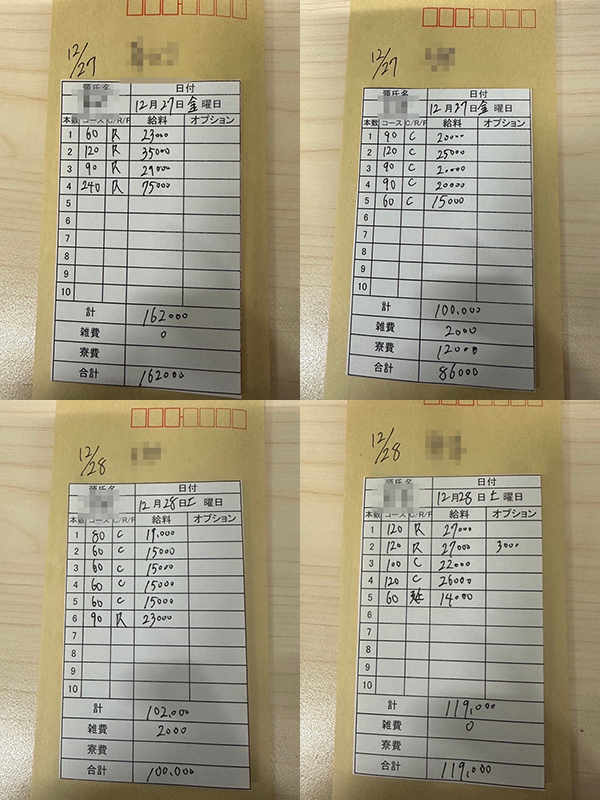 12/27
源氏名 日付
12月27日金曜日
本数 コース C/R/F 給料 オプション
1 60 R 23000
2 120 R 35000
3 90 R 29000
4 240 R 75000
5
6
7
8
9
10
計 162000
雑費 0
寮費
合計 162000
12/27
源氏名 日付
12月27日金曜日
本数 コース C/R/F 給料 オプション
1 90 C 20000
2 120 C 25000
3 90 C 20000
4 90 C 20000
5 60 C 15000
6
7
8
9
10
計 100,000
雑費 2000
寮費 12000
合計 86000
12/28
源氏名 日付
12月28日土曜日
本数 コース C/R/F 給料 オプション
1 80 C 19,000
2 60 C 15000
3 60 C 15000
4 60 C 15000
5 60 C 15000
6 90 R 23000
7
8
9
10
計 102,000
雑費 2000
寮費
合計 100,000
12/28
源氏名 日付
12月28日土曜日
本数 コース C/R/F 給料 オプション
1 120 R 27000
2 120 R 27000 3000
3 100 C 22000
4 120 C 26000
5 60 延 14000
6
7
8
9
10
計 119,000
雑費 0
寮費
合計 119,000